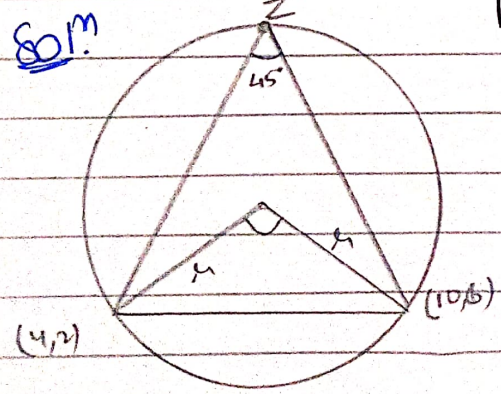 Solⁿ.
Z
45°
r
r
(4,2)
(10,6)